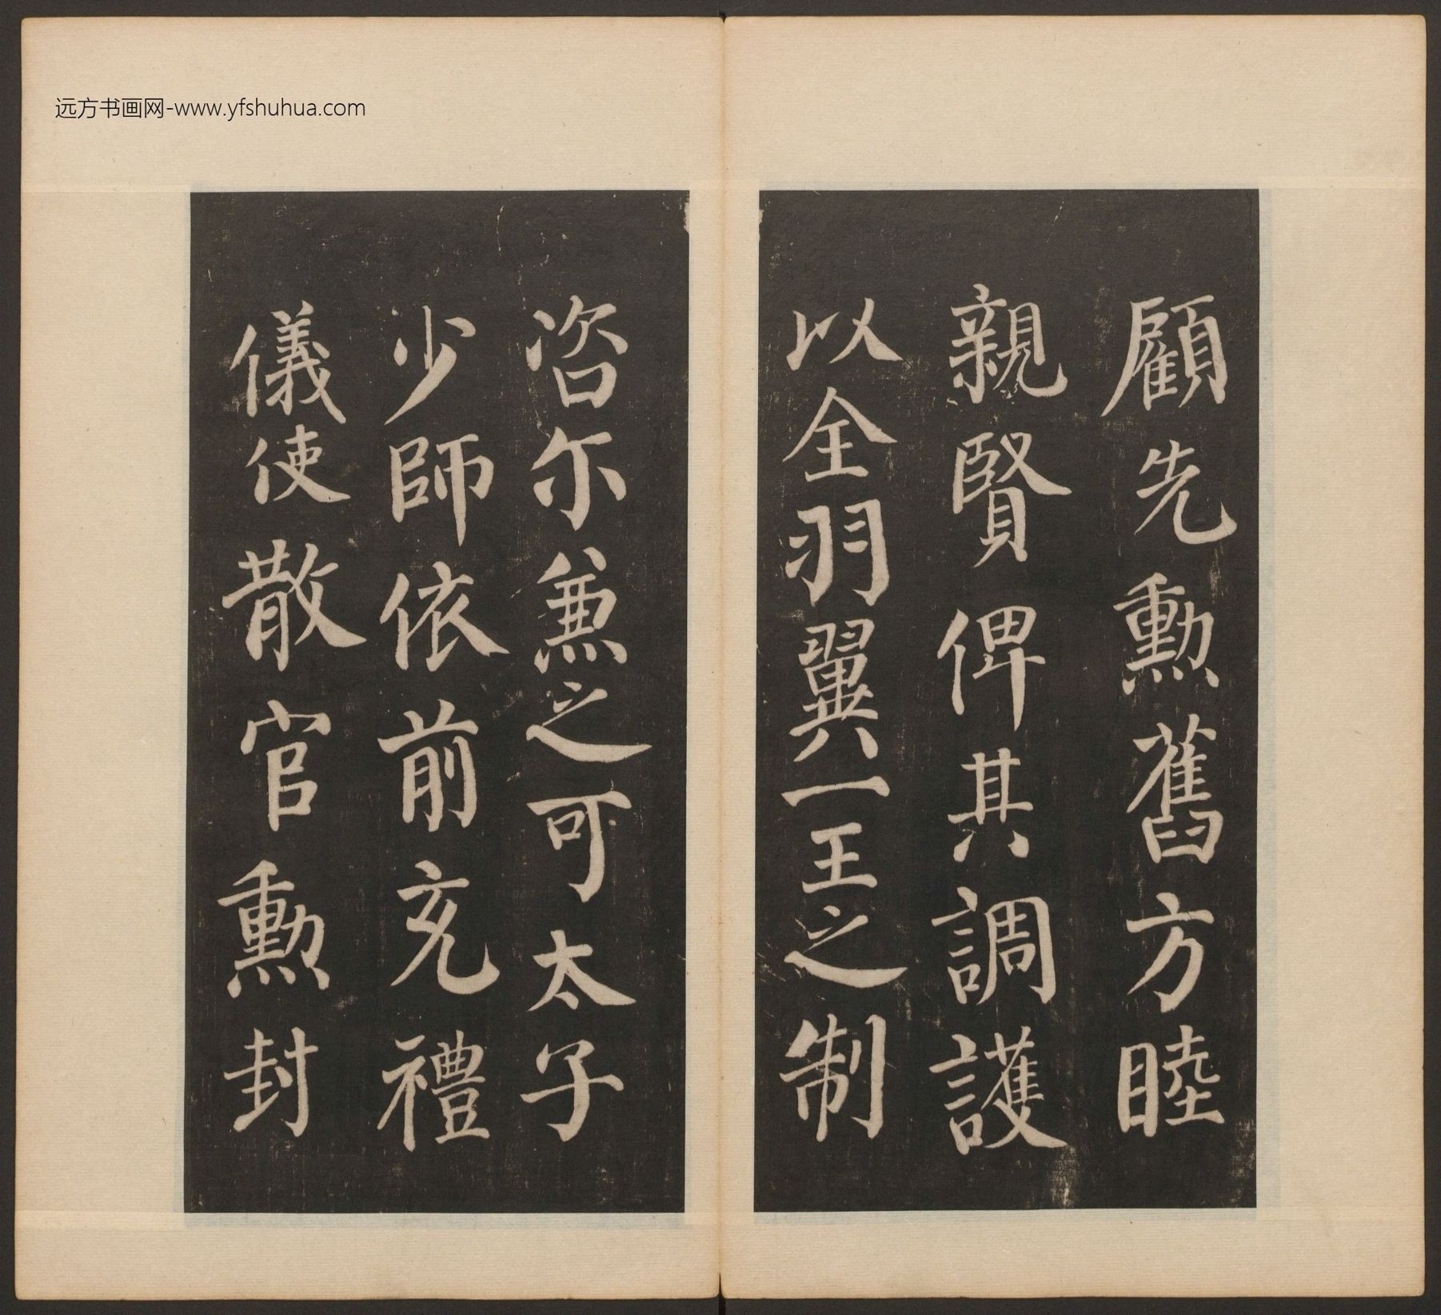 远方书画网-www.yfshuhua.com
顧先勳舊方睦
親賢俾其調護
以全羽翼一王之制
咨尓兼之可太子
少師依前充禮
儀使散官勳封